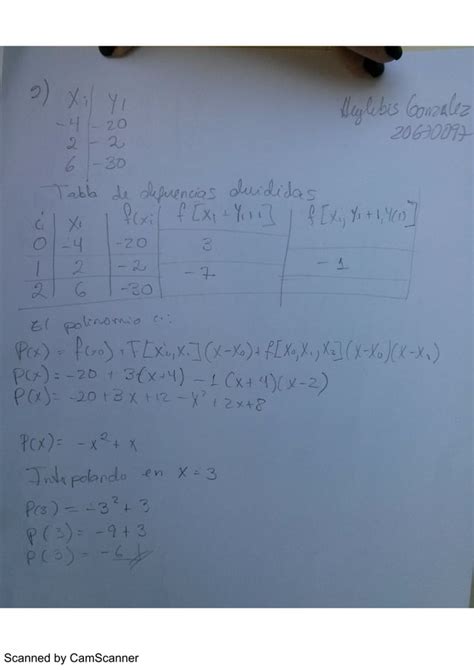 2)
Xi | Yi
-4 | -20
2 | -2
6 | -30
Gonzalez
20630097
Tabla de diferencias divididas
i | Xi | f(xi | f[Xi - Yi+1] | f[Xi, Yi+1, Y(i)]
0 | -4 | -20 | 3
1 | 2 | -2 | -7 | -1
2 | 6 | -30
El polinomio
P(x) = f(x0) + f[x0, x1](x-x0) + f[x0, x1, x2](x-x0)(x-x1)
P(x) = -20 + 3(x+4) - 1(x+4)(x-2)
P(x) = -20 + 3x + 12 - x² + 2x + 8
P(x) = -x² + x
Intepolando en x = 3
P(3) = -3² + 3
P(3) = -9 + 3
P(3) = -6
Scanned by CamScanner